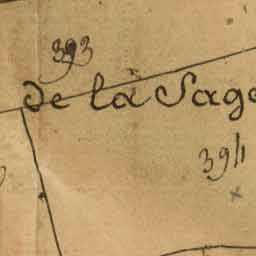 393
de la Sage
394